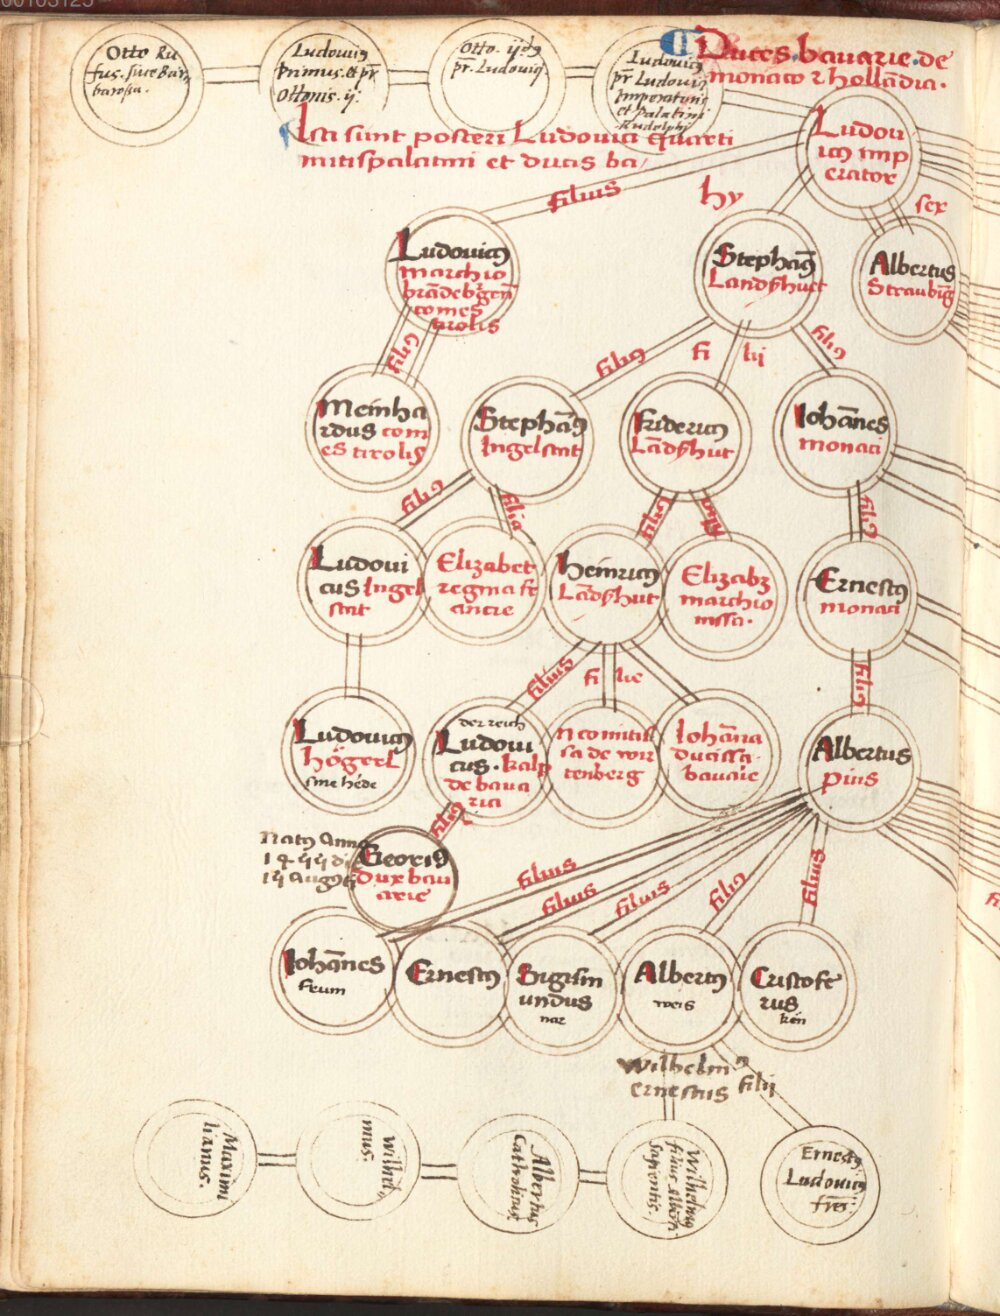 Otto Ru
fus. sive Bar
barosa.
Ludovicꝯ
primus. et pr̄
Ottonis. ij.
Otto. ijdꝯ
pr̄. Ludovici
Ludovicꝯ
pr̄ Ludovici
Imperatoris
et palatini
Rudolphi
Duces. bavarie. de
monaco ⁊ hollādia.
Isti sunt posteri Ludovici quarti
mitispalatini et ducis ba/
Ludovi
icꝯ imp
erator
filius
hy
sex
Ludovicꝯ
marchio
brādebͬgen̄
comes
tirolis
Stephāꝯ
Landßhuet
Albertus
Straubīg
filiꝯ
filiꝯ
fi lij
filiꝯ
Meinha
rdus com
es tirolis
Stephāꝯ
Ingelstat
Fridericꝯ
Lādßhut
Iohānes
monaci
filiꝯ
filia
filiꝯ
filia
filiꝯ
Ludovi
cus Ingel
stat
Elizabet
regina fr
ancie
heinricꝯ
Lādßhut
Elizabꝫ
marchio
nissa.
Ernestꝯ
monaci
filius
fi lie
filiꝯ
Ludovicꝯ
högrel
sine hēde
der reich
Ludovi
cus. kalp
de bava
ria
N comitis
sa de wir
tenberg
Iohāna
ducissa
bavaie
Albertus
pius
filiꝯ
Natꝯ Anno
Georiꝯ
dux bav
arie
filius
filius
filius
filiꝯ
filius
Iohānes
Ernestꝯ
Sigism
undus
Albertꝯ
Cristofe
rus
Wilhelmꝯ
ernestus filij
Maximi
lianus.
Wilhel
mus.
Albertus
Catholicus
Wilhelmꝯ
filius alberti
sapientis.
Ernestꝯ
Ludovicꝯ